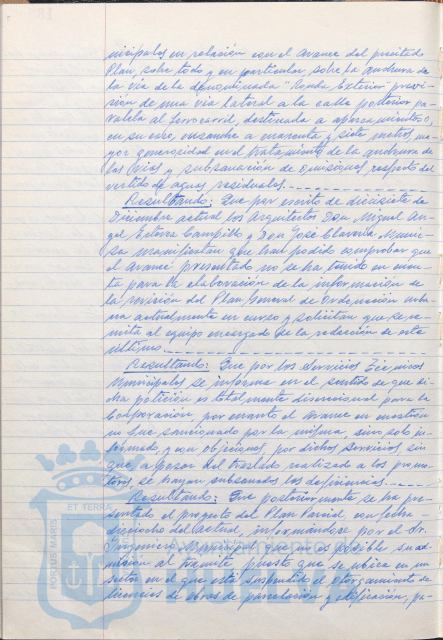 nicipales en relación con el Avance del precitado
Plan, sobre todo y en particular, sobre la anchura de
la vía de la denominada "Ronda Exterior" previ-
sión de una vía lateral a la calle posterior pa-
ralela al ferrocarril, destinada a aparcamiento, o
en su caso, ensanche a cuarenta y siete metros, ma-
yor generosidad en el tratamiento de la anchura de
las vías y subsanación de omisiones respecto del
vertido de aguas residuales.
Resultando: Que por escrito de diecisiete de
Diciembre actual los Arquitectos Don Miguel An-
gel Esteve Campillo y Don José Claveria
manifiestan que han podido comprobar que
el Avance presentado no se ha tenido en cuen-
ta para la elaboración de la información de
la revisión del Plan General de Ordenación urba-
na actualmente en curso y solicitan que se re-
mita al equipo encargado de la redacción de este
último.
Resultando: Que por los Servicios Técnicos
Municipales se informa en el sentido de que di-
cha petición es totalmente discrecional para la
Corporación, por cuanto el avance en cuestión
no fue sancionado por la misma, sino solo in-
formado y con objeciones, por dichos servicios, sin
que, a pesar del traslado realizado a los promo-
tores, se hayan subsanado las deficiencias.
Resultando: Que posteriormente, se ha pre-
sentado el proyecto del Plan Parcial con fecha
dieciocho del actual, informándose por el Sr.
Ingeniero Municipal que no es posible su ad-
misión al trámite puesto que se ubica en un
sector en el que está suspendido el otorgamiento de
licencias de obras de parcelación y edificación, pa-
ET TERRA
PORTUS MARIS